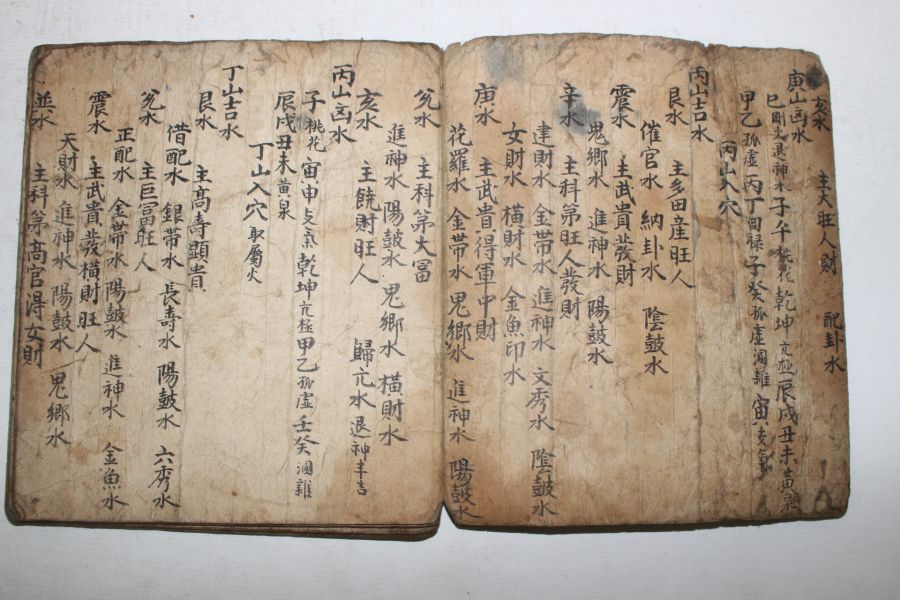 亥水　主大旺人財　配卦水
庚山凶水
巳剛火退神水　子午桃花　乾坤亢極　辰戌丑未黃泉
甲乙孤虛　丙丁回禄　子癸孤虛涸雜　寅支氣
丙山入穴
丙山吉水
艮水　主多田産旺人
催官水　納卦水　陰皷水
震水　主武貴發財
鬼鄉水　進神水　陽皷水
辛水　主科第旺人發財
建財水　金帶水　進神水　文秀水　陰皷水
女財水　橫財水　金魚印水
庚水　主武貴得軍中財
花羅水　金帶水　鬼鄉水　進神水　陽皷水
兊水　主科第大冨
進神水　陽皷水　鬼鄉水　橫財水
亥水　主饒財旺人　歸亢水　退神半吉
丙山凶水
子桃花　寅申支氣　乾坤亢極　甲乙孤虛　壬癸涸雜
辰戌丑未黃泉
丁山入穴　取屬火
丁山吉水
艮水　主髙壽顯貴
借配水　銀帶水　長壽水　陽皷水　六秀水
兊水　主巨冨旺人
正配水　金帶水　陽皷水　進神水　金魚水
震水　主武貴發橫財旺人
天財水　進神水　陽皷水　鬼鄉水
巽水　主科第髙官得女財